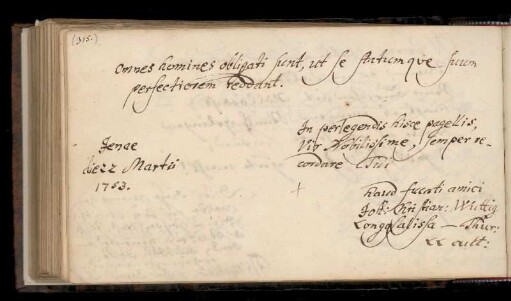 (315.)
Omnes homines obligati sunt, ut se statumque suum
perfectiorem reddant.
Jenae
die 22 Martii
1753.
In perlegendis hisce pagellis,
Vir Nobilissime, semper re-
cordare Tui
haud fucati amici
Joh: Christian: Wuttig
Longosalissa — Thur:
LL cult: